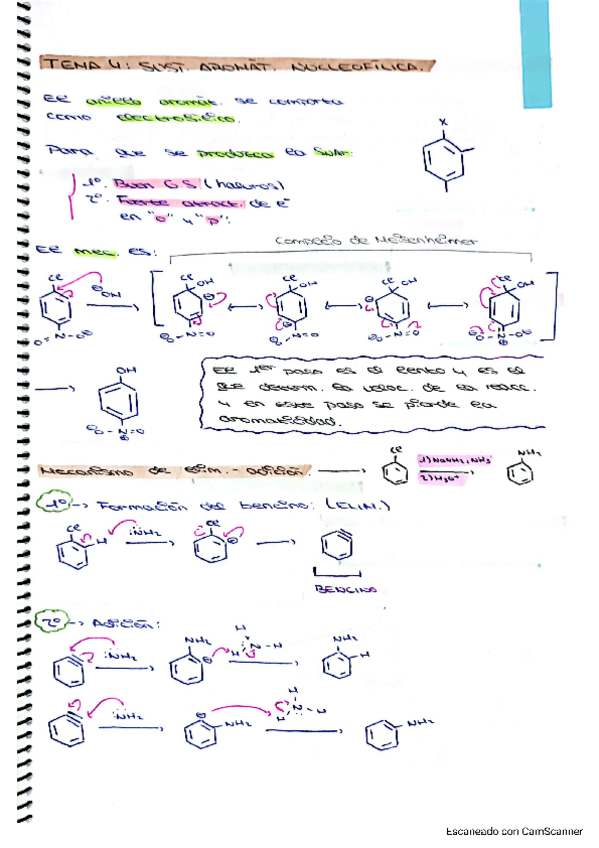 TEMA 4: SUST. AROMÁT. NUCLEOFÍLICA.
El anillo aromát. se comporta
como electrofílico.
Para que se produzca la SNAr:
1º. Buen G.S. (haluros)
2º. Fuerte atract. de e⁻
en "o" y "p".
X
El mec. es:
Complejo de Meisenheimer
El 1er paso es el lento y es el
que determ. la veloc. de la reacc.
y en este paso se pierde la
aromaticidad.
Mecanismo de elim. - adición.
Cl
1) NaNH2, NH3
2) H3O+
NH2
1º → Formación del bencino: (ELIM.)
Cl
H
:NH2
Cl
BENCINO
2º → Adición:
:NH2
NH2
H
N
H
NH2
H
:NH2
NH2
H
N
H
NH2
Escaneado con CamScanner